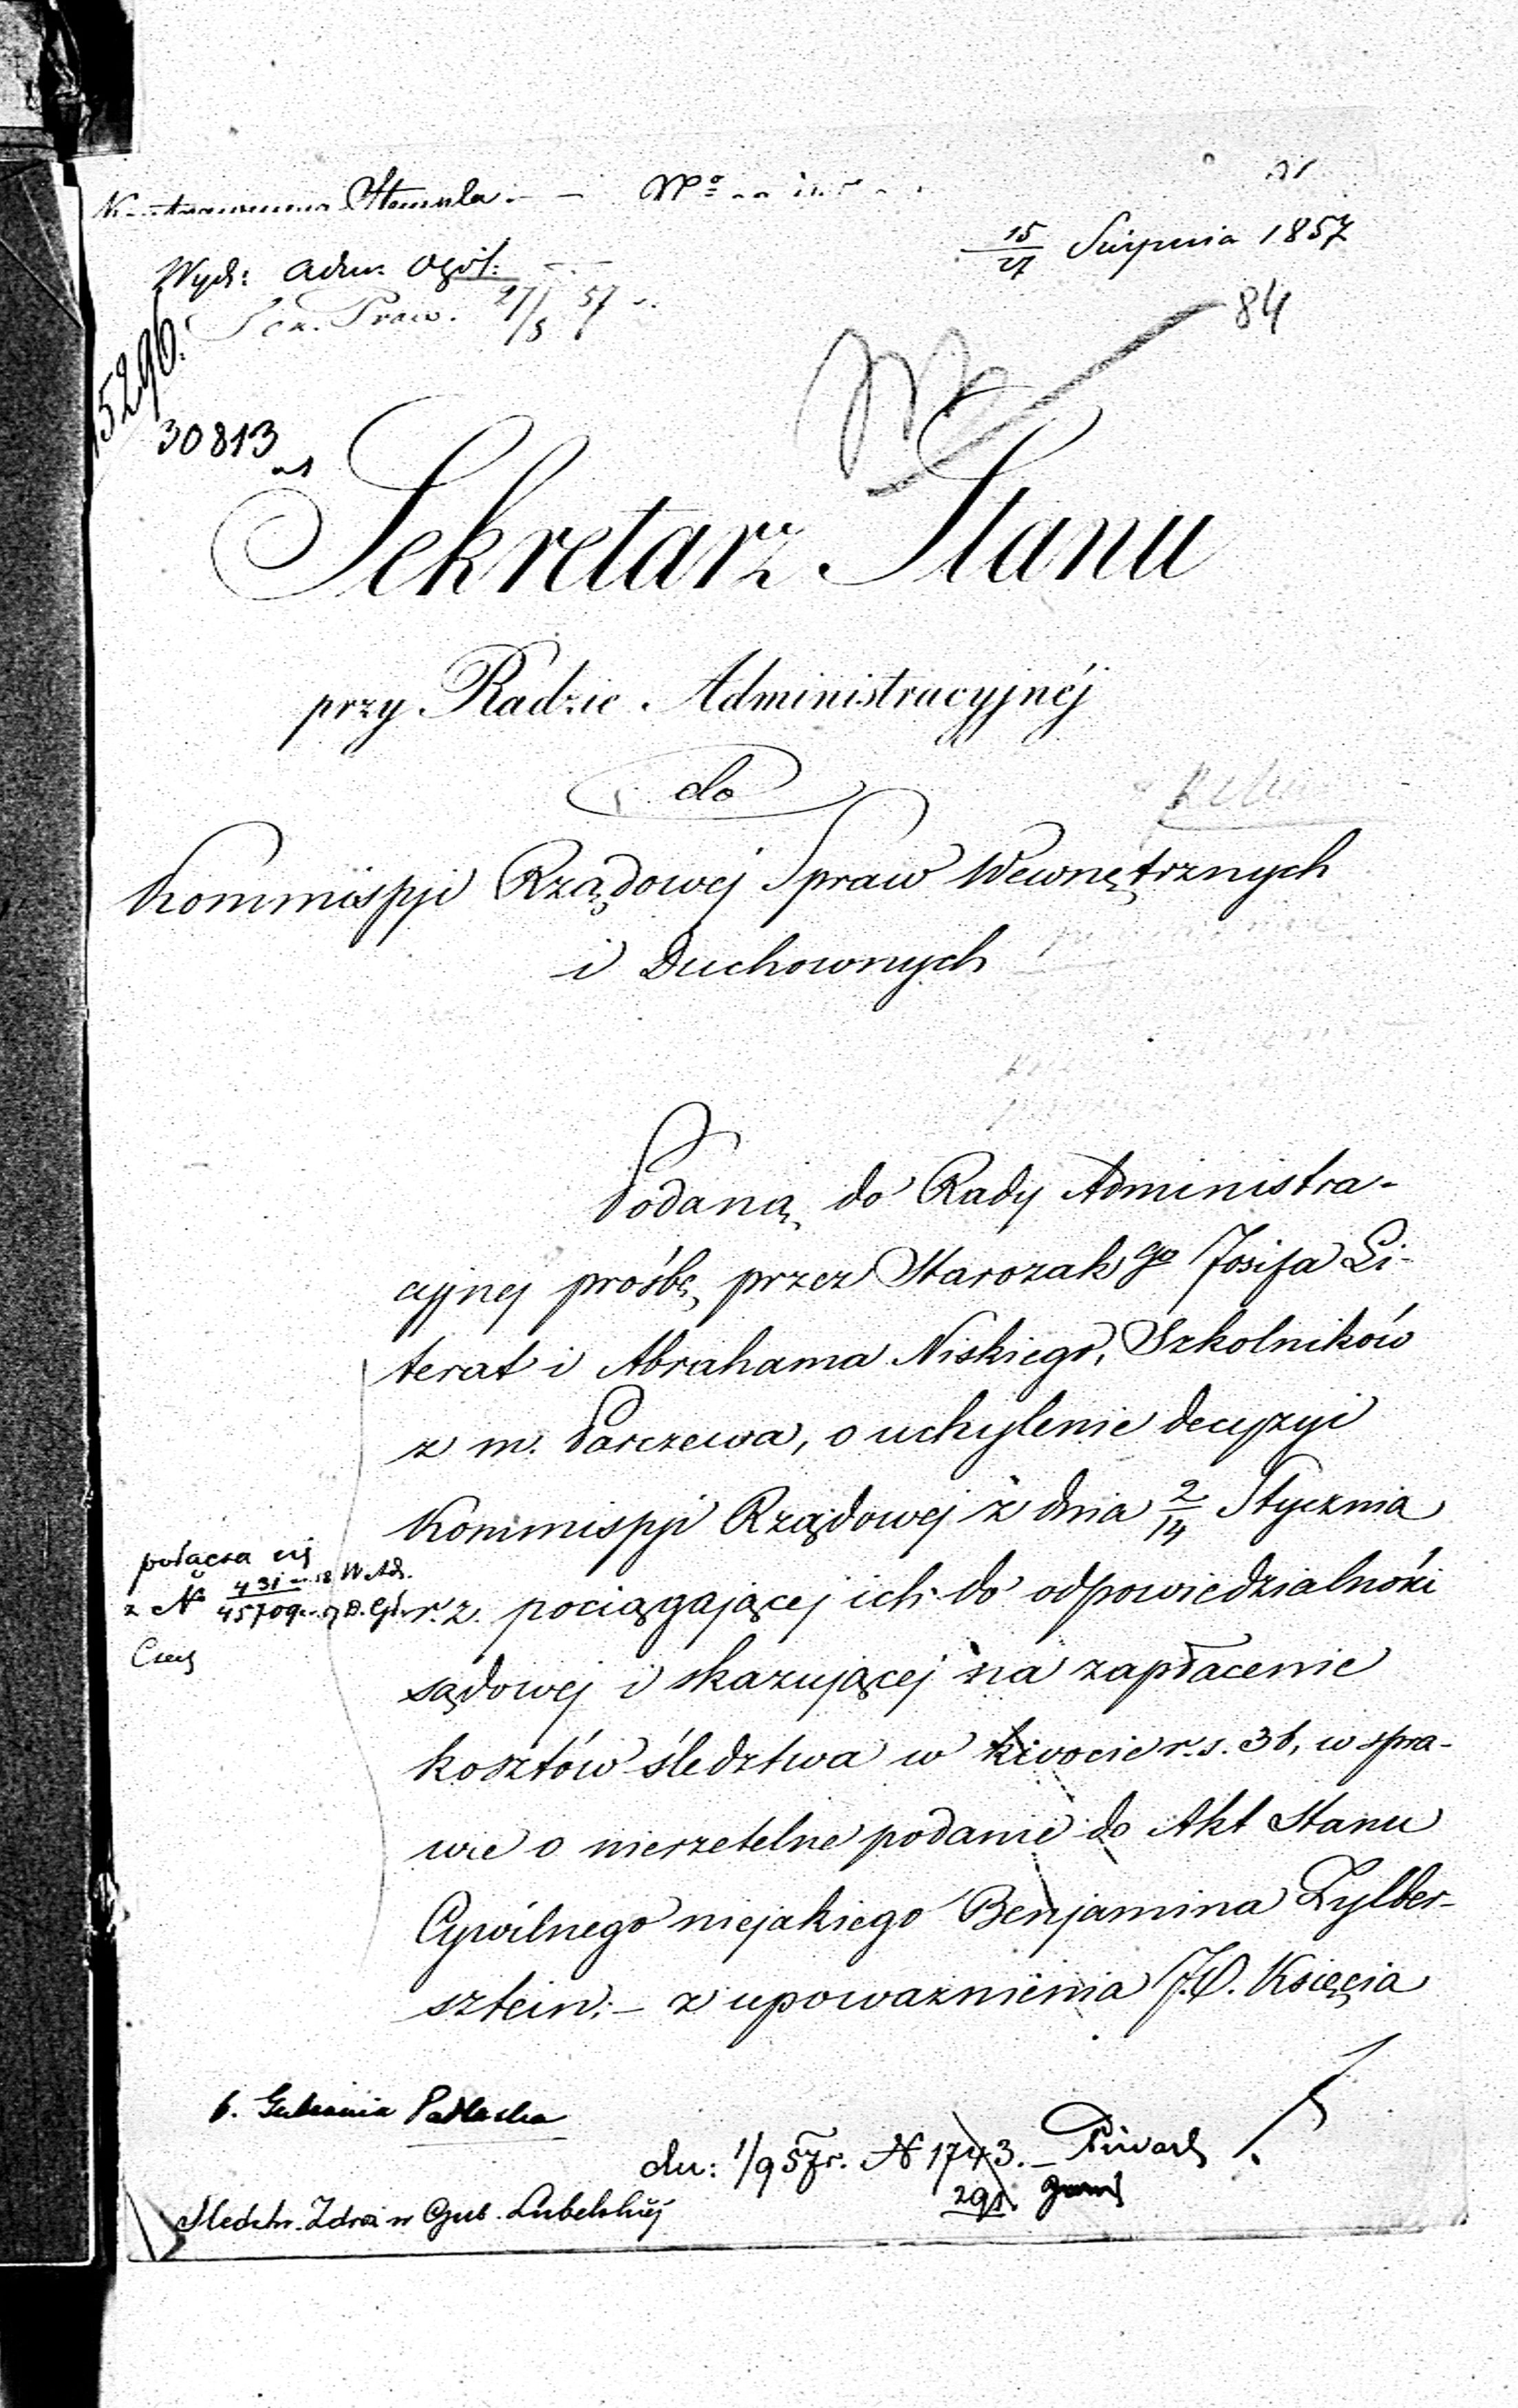 Nº
15/27 Sierpnia 1857
Wydz: Adm: Ogól:
84
15296.
30813
Sekretarz Stanu
przy Radzie Administracyjnéj
do
Kommissyi Rządowej Spraw Wewnętrznych
i Duchownych
Podaną do Rady Administra-
cyjnej prośbę przez Starozak go Josifa Li-
terat i Abrahama Niskiego, Szkolników
z m. Parczewa, o uchylenie decyzyi
Kommissyi Rządowej z dnia 2/14 Stycznia
r. z. pociągającej ich do odpowiedzialności
sądowej i skazującej na zapłacenie
kosztów śledztwa w kwocie r. s. 36, w spra-
wie o nierzetelne podanie do Akt Stanu
Cywilnego niejakiego Benjamina Zylber-
sztein; – z upoważnienia J.O. Księcia
połącza się
z Nº 431 W. Ad.
45709
6. Gubernia Podlaska
dn: 1/9 57 r. N 1743.
291.
w Gub. Lubelskiéj